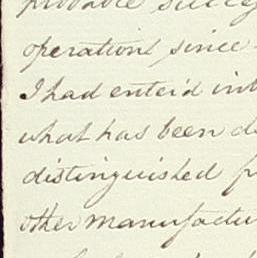 probable succe
operations since
I had enter'd int
what has been d
distinguished f
other manufactu